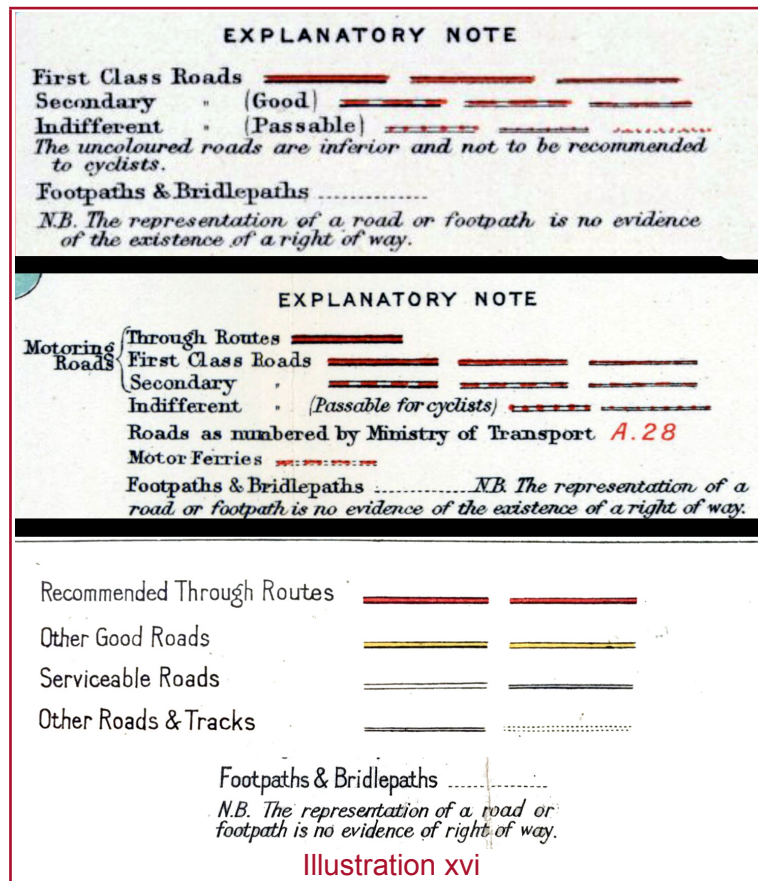 EXPLANATORY NOTE
First Class Roads
Secondary " (Good)
Indifferent " (Passable)
The uncoloured roads are inferior and not to be recommended
to cyclists.
Footpaths & Bridlepaths ..............
N.B. The representation of a road or footpath is no evidence
of the existence of a right of way.
EXPLANATORY NOTE
Motoring Roads
Through Routes
First Class Roads
Secondary "
Indifferent " (Passable for cyclists)
Roads as numbered by Ministry of Transport A.28
Motor Ferries
Footpaths & Bridlepaths .............. N.B. The representation of a
road or footpath is no evidence of the existence of a right of way.
Recommended Through Routes
Other Good Roads
Serviceable Roads
Other Roads & Tracks
Footpaths & Bridlepaths ..............
N.B. The representation of a road or
footpath is no evidence of right of way.
Illustration xvi